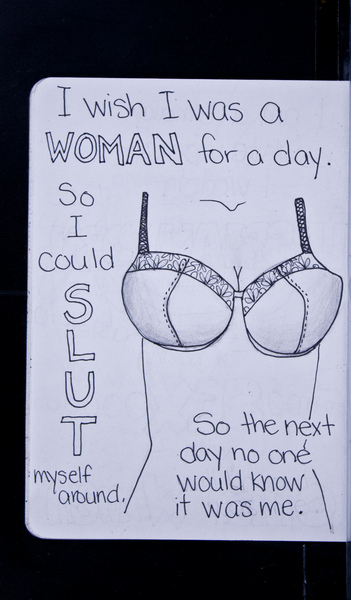 I wish I was a
WOMAN for a day.
So
I
could
SLUT
myself
around.
So the next
day no one
would know
it was me.